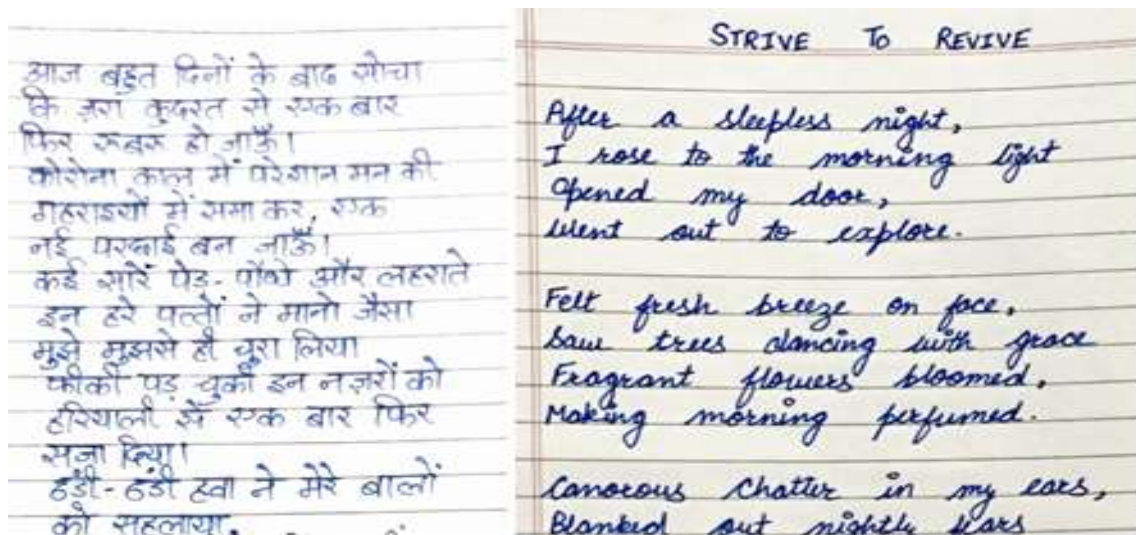 आज बहुत दिनों के बाद सोचा
कि ज़रा कुदरत से एक बार
फिर रूबरू हो जाऊँ।
कोरोना काल में परेशान मन की
गहराइयों में समा कर, एक
नई परछाई बन जाऊँ।
कई सारे पेड़-पौधे और लहराते
इन हरे पत्तों ने मानो जैसा
मुझे मुझसे ही चुरा लिया
फीकी पड़ चुकी इन नज़रों को
हरियाली से एक बार फिर
सजा दिया।
ठंडी-ठंडी हवा ने मेरे बालों
को सहलाया,
STRIVE TO REVIVE
After a sleepless night,
I rose to the morning light
Opened my door,
Went out to explore.
Felt fresh breeze on face,
Saw trees dancing with grace
Fragrant flowers bloomed,
Making morning perfumed.
Canorous chatter in my ears,
Blanked out nightly fears